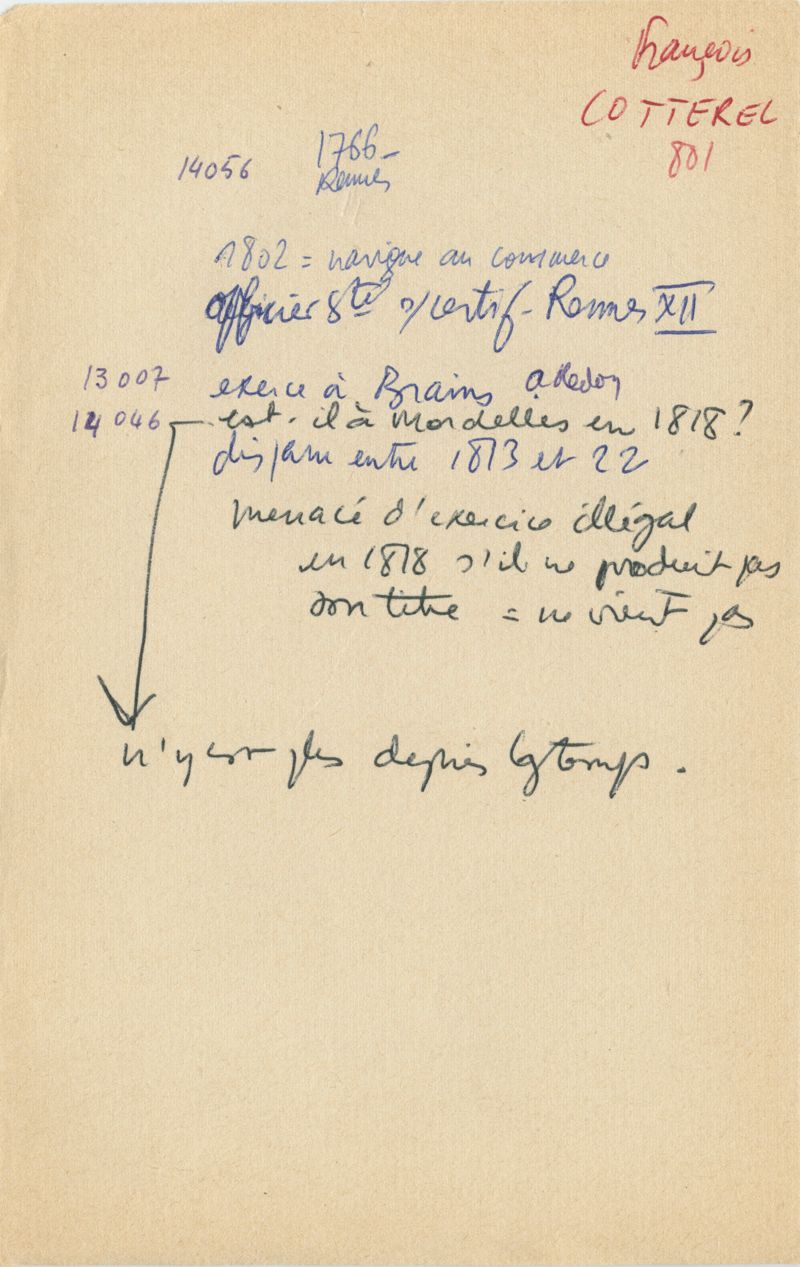 François
COTTEREL
801
14056 1766-
Rennes
1802 = navigue au commerce
officier Sté s/certif - Rennes XII
13007 exerce à Brains a. Redon
14046 est-il à Mordelles en 1818?
disparu entre 1813 et 22
menacé d'exercice illégal
en 1818 s'il ne produit pas
son titre = ne vient pas
n'y est plus depuis lgtemps.